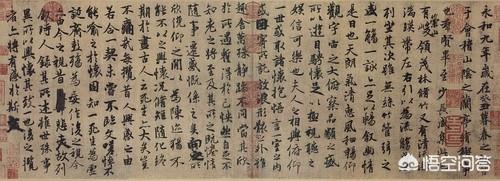 永和九年歲在癸丑暮春之初會
于會稽山陰之蘭亭脩稧事
也群賢畢至少長咸集此地
有崇山峻領茂林脩竹又有清流激
湍暎帶左右引以為流觴曲水
列坐其次雖無絲竹管弦之
盛一觴一詠亦足以暢敘幽情
是日也天朗氣清惠風和暢仰
觀宇宙之大俯察品類之盛
所以遊目騁懷足以極視聽之
娛信可樂也夫人之相與俯仰
一世或取諸懷抱悟言一室之內
或因寄所託放浪形骸之外雖
趣舍萬殊靜躁不同當其欣
於所遇暫得於己怏然自足不
知老之將至及其所之既惓情
隨事遷感慨係之矣向之所
欣俛仰之間以為陳迹猶不
能不以之興懷況脩短隨化終
期於盡古人云死生亦大矣豈
不痛哉每攬昔人興感之由
若合一契未嘗不臨文嗟悼不
能喻之於懷固知一死生為虛
誕齊彭殤為妄作後之視今
亦由今之視昔悲夫故列
敘時人錄其所述雖世殊事
異所以興懷其致一也後之攬
者亦將有感於斯文
悟空问答